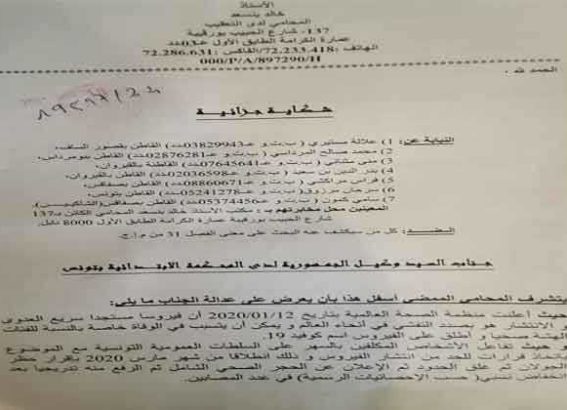 الأستاذ
خالد بنسعد
المحامي لدى التعقيب
137- شارع الحبيب بورقيبة
عمارة الكرامة الطابق الأول
الهاتف: 72.233.418/الفاكس: 72.286.631
000/P/A/897290/H
الحمد لله
شكاية جزائية
النيابة عن: 1) علالة (ب.ت.و عـ03829943ـدد) القاطن بقصور الساف،
2) محمد صالح المرداسي (ب.ت.و عـ02876281ـدد) القاطن ببومرداس،
3) منى (ب.ت.و عـ07645641ـدد) القاطنة بالقيروان،
4) بدر الدين بن سعيد (ب.ت.و عـ02036598ـدد) القاطن بالقيروان،
5) فرات مراكشي (ب.ت.و عـ08860671ـدد) القاطن بصفاقس،
6) سرحان (ب.ت.و عـ05241278ـدد) القاطن بتونس،
7) سامي كمون (ب.ت.و عـ05374456ـدد) القاطن بصفاقس (الشاكين).
المعينين محل مخابرتهم بـ: مكتب الأستاذ خالد بنسعد المحامي الكائن بـ137
شارع الحبيب بورقيبة عمارة الكرامة الطابق الأول 8000 نابل.
الضد: كل من سيكشف عنه البحث على معنى الفصل 31 من م.إ.ج.
جناب السيد وكيل الجمهورية لدى المحكمة الابتدائية بتونس
يتشرف المحامي الممضي أسفل هذا بأن يعرض على عدالة الجناب ما يلي:
حيث أعلنت منظمة الصحة العالمية بتاريخ 2020/01/12 أن فيروسا مستجدا سريع العدوى
و الانتشار هو بصدد التفشي في أنحاء العالم و يمكن أن يتسبب في الوفاة خاصة بالنسبة للفئات
الهشة صحيا و أطلق على الفيروس اسم كوفيد 19.
حيث تفاعل الأشخاص المكلفين بالسهر على السلطات العمومية التونسية مع الموضوع
باتخاذ قرارات للحد من انتشار الفيروس و ذلك انطلاقا من شهر مارس 2020 بإقرار حظر
الجولان ثم غلق الحدود ثم الإعلان عن الحجر الصحي الشامل ثم الرفع منه تدريجيا بعد
انخفاض نسبي (حسب الإحصائيات الرسمية) في عدد المصابين.